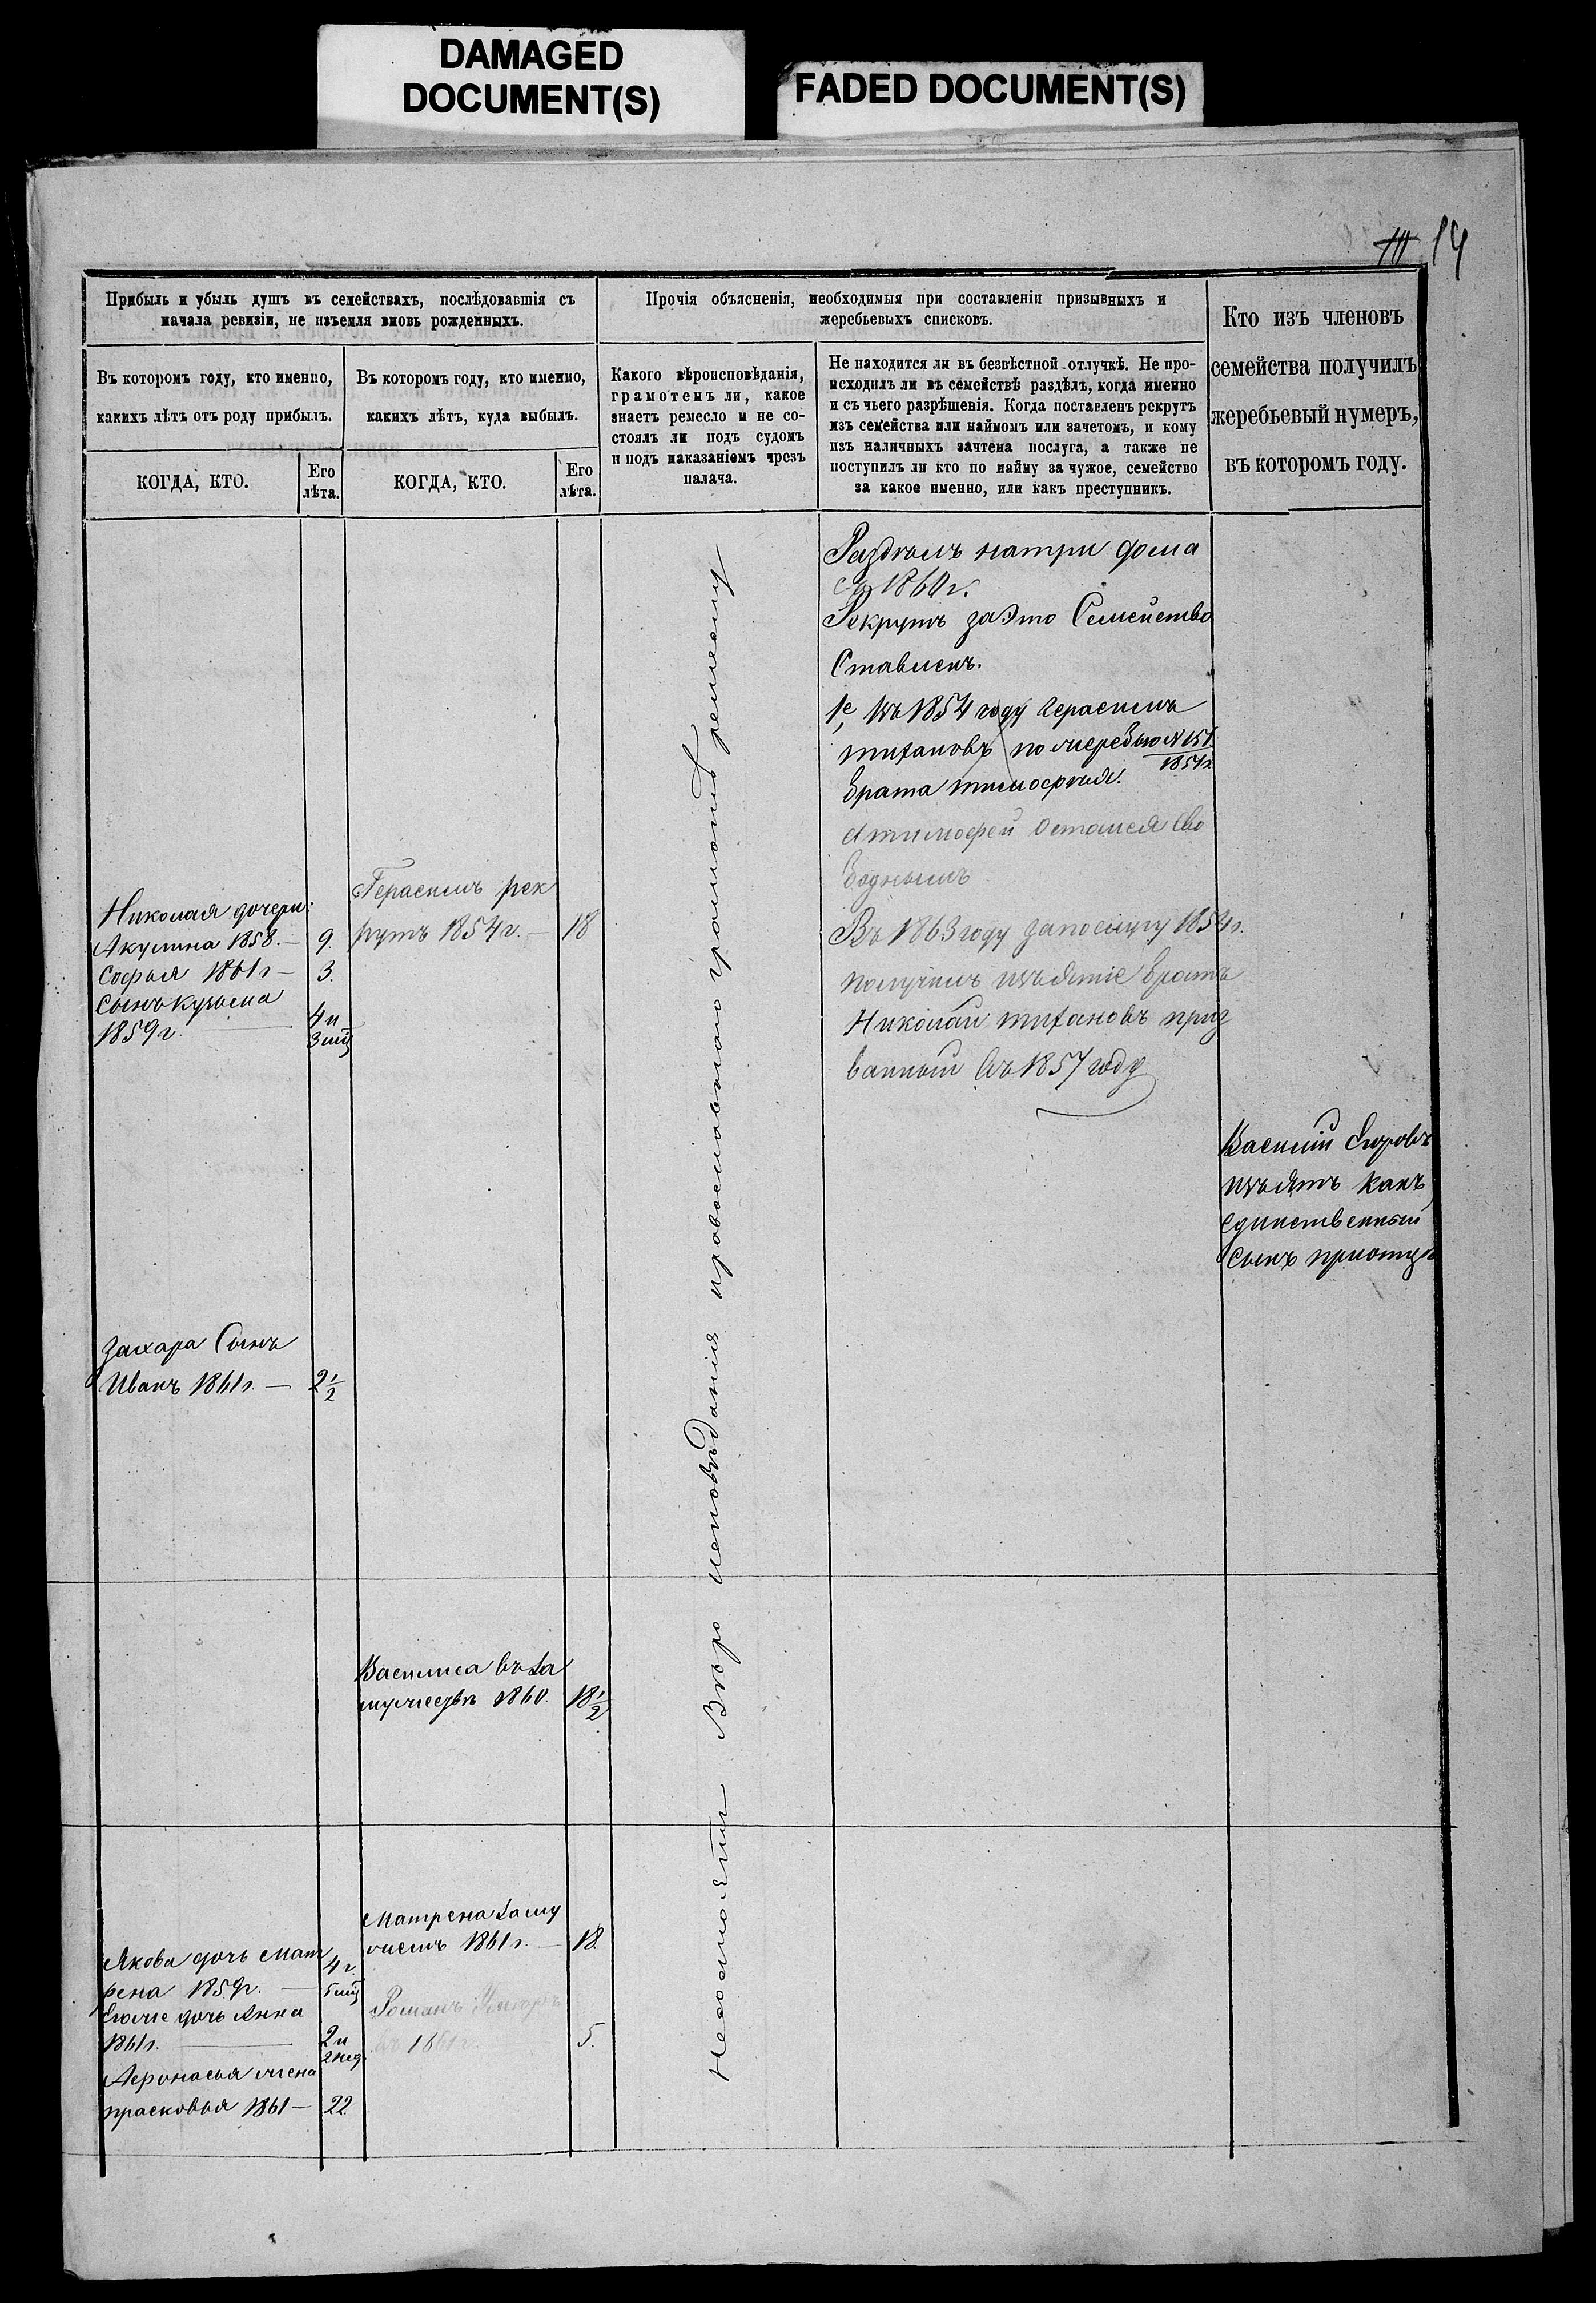 DAMAGED
DOCUMENT(S)
FADED DOCUMENT(S)
10 14
Прибыль и убыль душъ въ семействахъ, послѣдовавшія съ
начала ревизіи, не изъемля вновь рожденныхъ.
Прочія объясненія, необходимыя при составленіи призывныхъ и
жеребьевыхъ списковъ.
Кто изъ членовъ
семейства получилъ
жеребьевый нумеръ,
въ которомъ году.
Въ которомъ году, кто именно,
какихъ лѣтъ отъ роду прибылъ.
Въ которомъ году, кто именно,
какихъ лѣтъ, куда выбылъ.
Какого вѣроисповѣданія,
грамотенъ ли, какое
знаетъ ремесло и не со-
стоялъ ли подъ судомъ
и подъ наказаніемъ чрезъ
палача.
Не находится ли въ безвѣстной отлучкѣ. Не про-
исходилъ ли въ семействѣ раздѣлъ, когда именно
и съ чьего разрѣшенія. Когда поставленъ рекрутъ
изъ семейства или наймомъ или зачетомъ, и кому
изъ наличныхъ зачтена послуга, а также не
поступилъ ли кто по найму за чужое, семейство
за какое именно, или какъ преступникъ.
КОГДА, КТО.
Его
лѣта.
КОГДА, КТО.
Его
лѣта.
Николая дочери:
Акулина 1858. — 9.
Софья 1861г — 3.
Сынъ кузьма
1859г. 4 и
3 мц
Захара Сынъ
Иванъ 1861г. — 2 1/2
Якова дочь Мат
рена 1859г. — 4 г.
5 мц
дочь Анна
1861г. 2 и
2 нед.
Афонасья жена
прасковья 1861 — 22
Герасимъ рек
рутъ 1854г. — 18
Василиса въ за
мужествѣ 1860. 18 1/2
Матрена заму
жемъ 1861г. — 18.
Романъ Умеръ
въ 1861г. 5.
Несостоятъ Вѣро исповѣданія православнаго грамотъ ремеслу
Раздѣлъ натри дома
съ 1860г.
Рекрутъ за Это Семейство
Ставленъ.
1е, Въ 1854 году Герасимъ
титановъ по очередью N 151.
1854г.
брата тимофѣя.
А тимофей остался Сво
боднымъ
Въ 1863 году запослугу 1854г.
получилъ изъятіе братъ
Николай титановъ приз
ванный въ 1857 году
Василій Егоровъ
изъятъ какъ
единственный
Сынъ приотцѣ